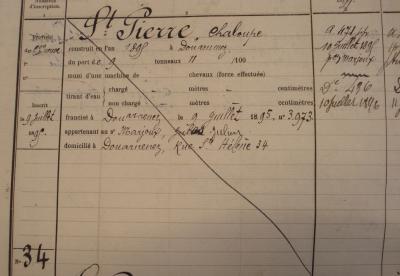 Numéros
d'inscription.
St Pierre, Chaloupe
construit en l'an 1895 à Douarnenez
du port de 9 tonneaux 11 /100
muni d'une machine de chevaux (force effectuée)
tirant d'eau { chargé mètres centimètres
non chargé mètres centimètres
francisé à Douarnenez le 9 juillet 1895. n° 3.973
appartenant au Sr Marjoux, Julien
domicilié à Douarnenez, Rue Ste Hélène 34
Inscrit
le 9 juillet
1895
10 juillet 1895
Do 496
10 juillet 1896
No
34